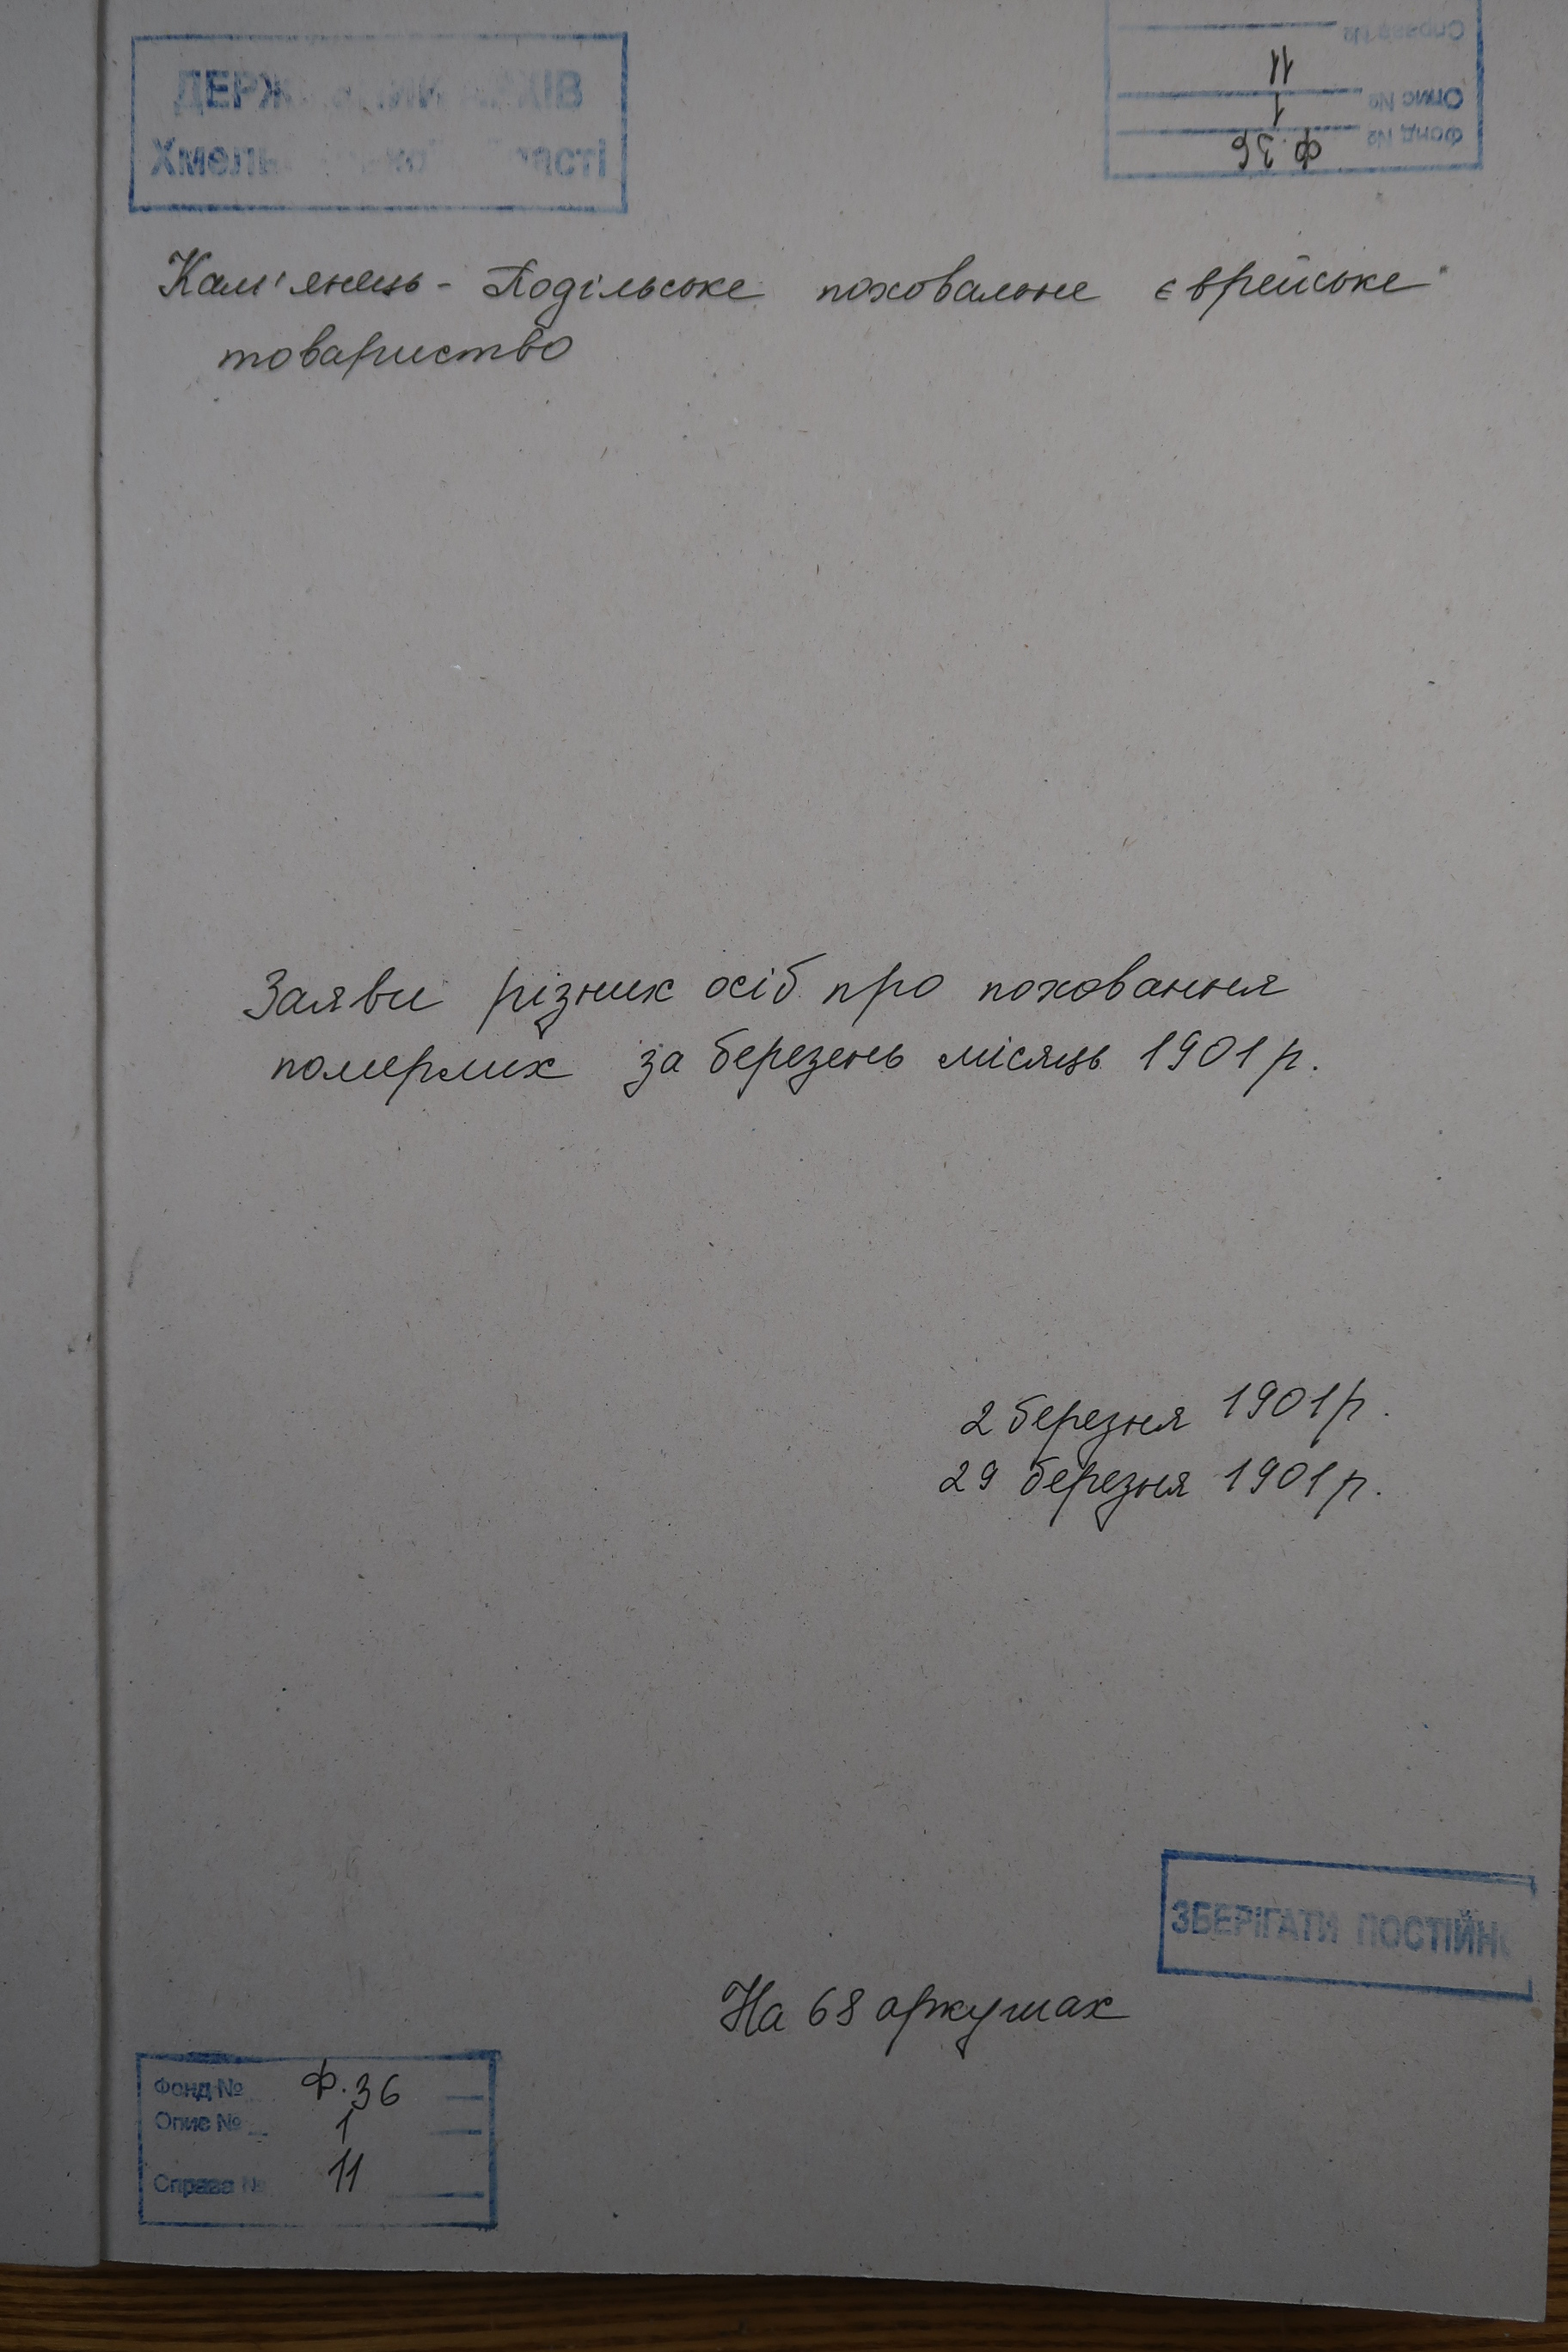 ДЕРЖАВНИЙ АРХІВ
Хмельницької області
Справа №
11
Опис № 1
Фонд № ф. 36
Кам'янець-Подільське поховальне єврейське
товариство
Заяви різних осіб про поховання
померлих за березень місяць 1901 р.
2 березня 1901 р.
29 березня 1901 р.
ЗБЕРІГАТИ ПОСТІЙНО
На 68 аркушах
Фонд № Ф. 36
Опис № 1
Справа № 11